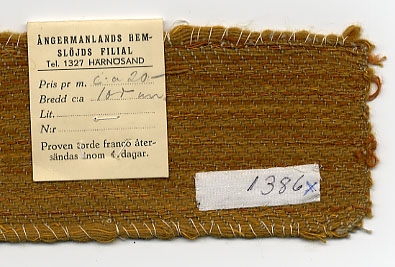 ÅNGERMANLANDS HEM-
SLÖJDS FILIAL
Tel. 1327 HÄRNÖSAND
Pris pr m. c:a 20-
Bredd c:a
Lit.
N:r
Proven torde franco åter-
sändas inom 4 dagar.
1386x